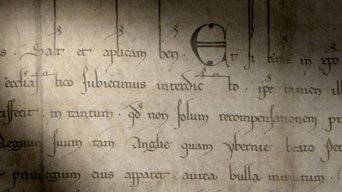 Salt et aplicam ben. Et in xpo
tico subiecimus interdicto. ipe tamen
in tantum. qd non solum recompensationem
Regnum suum tam Anglie quam Ybernie beato Pet
privilegium eius apparet aurea bulla munitum